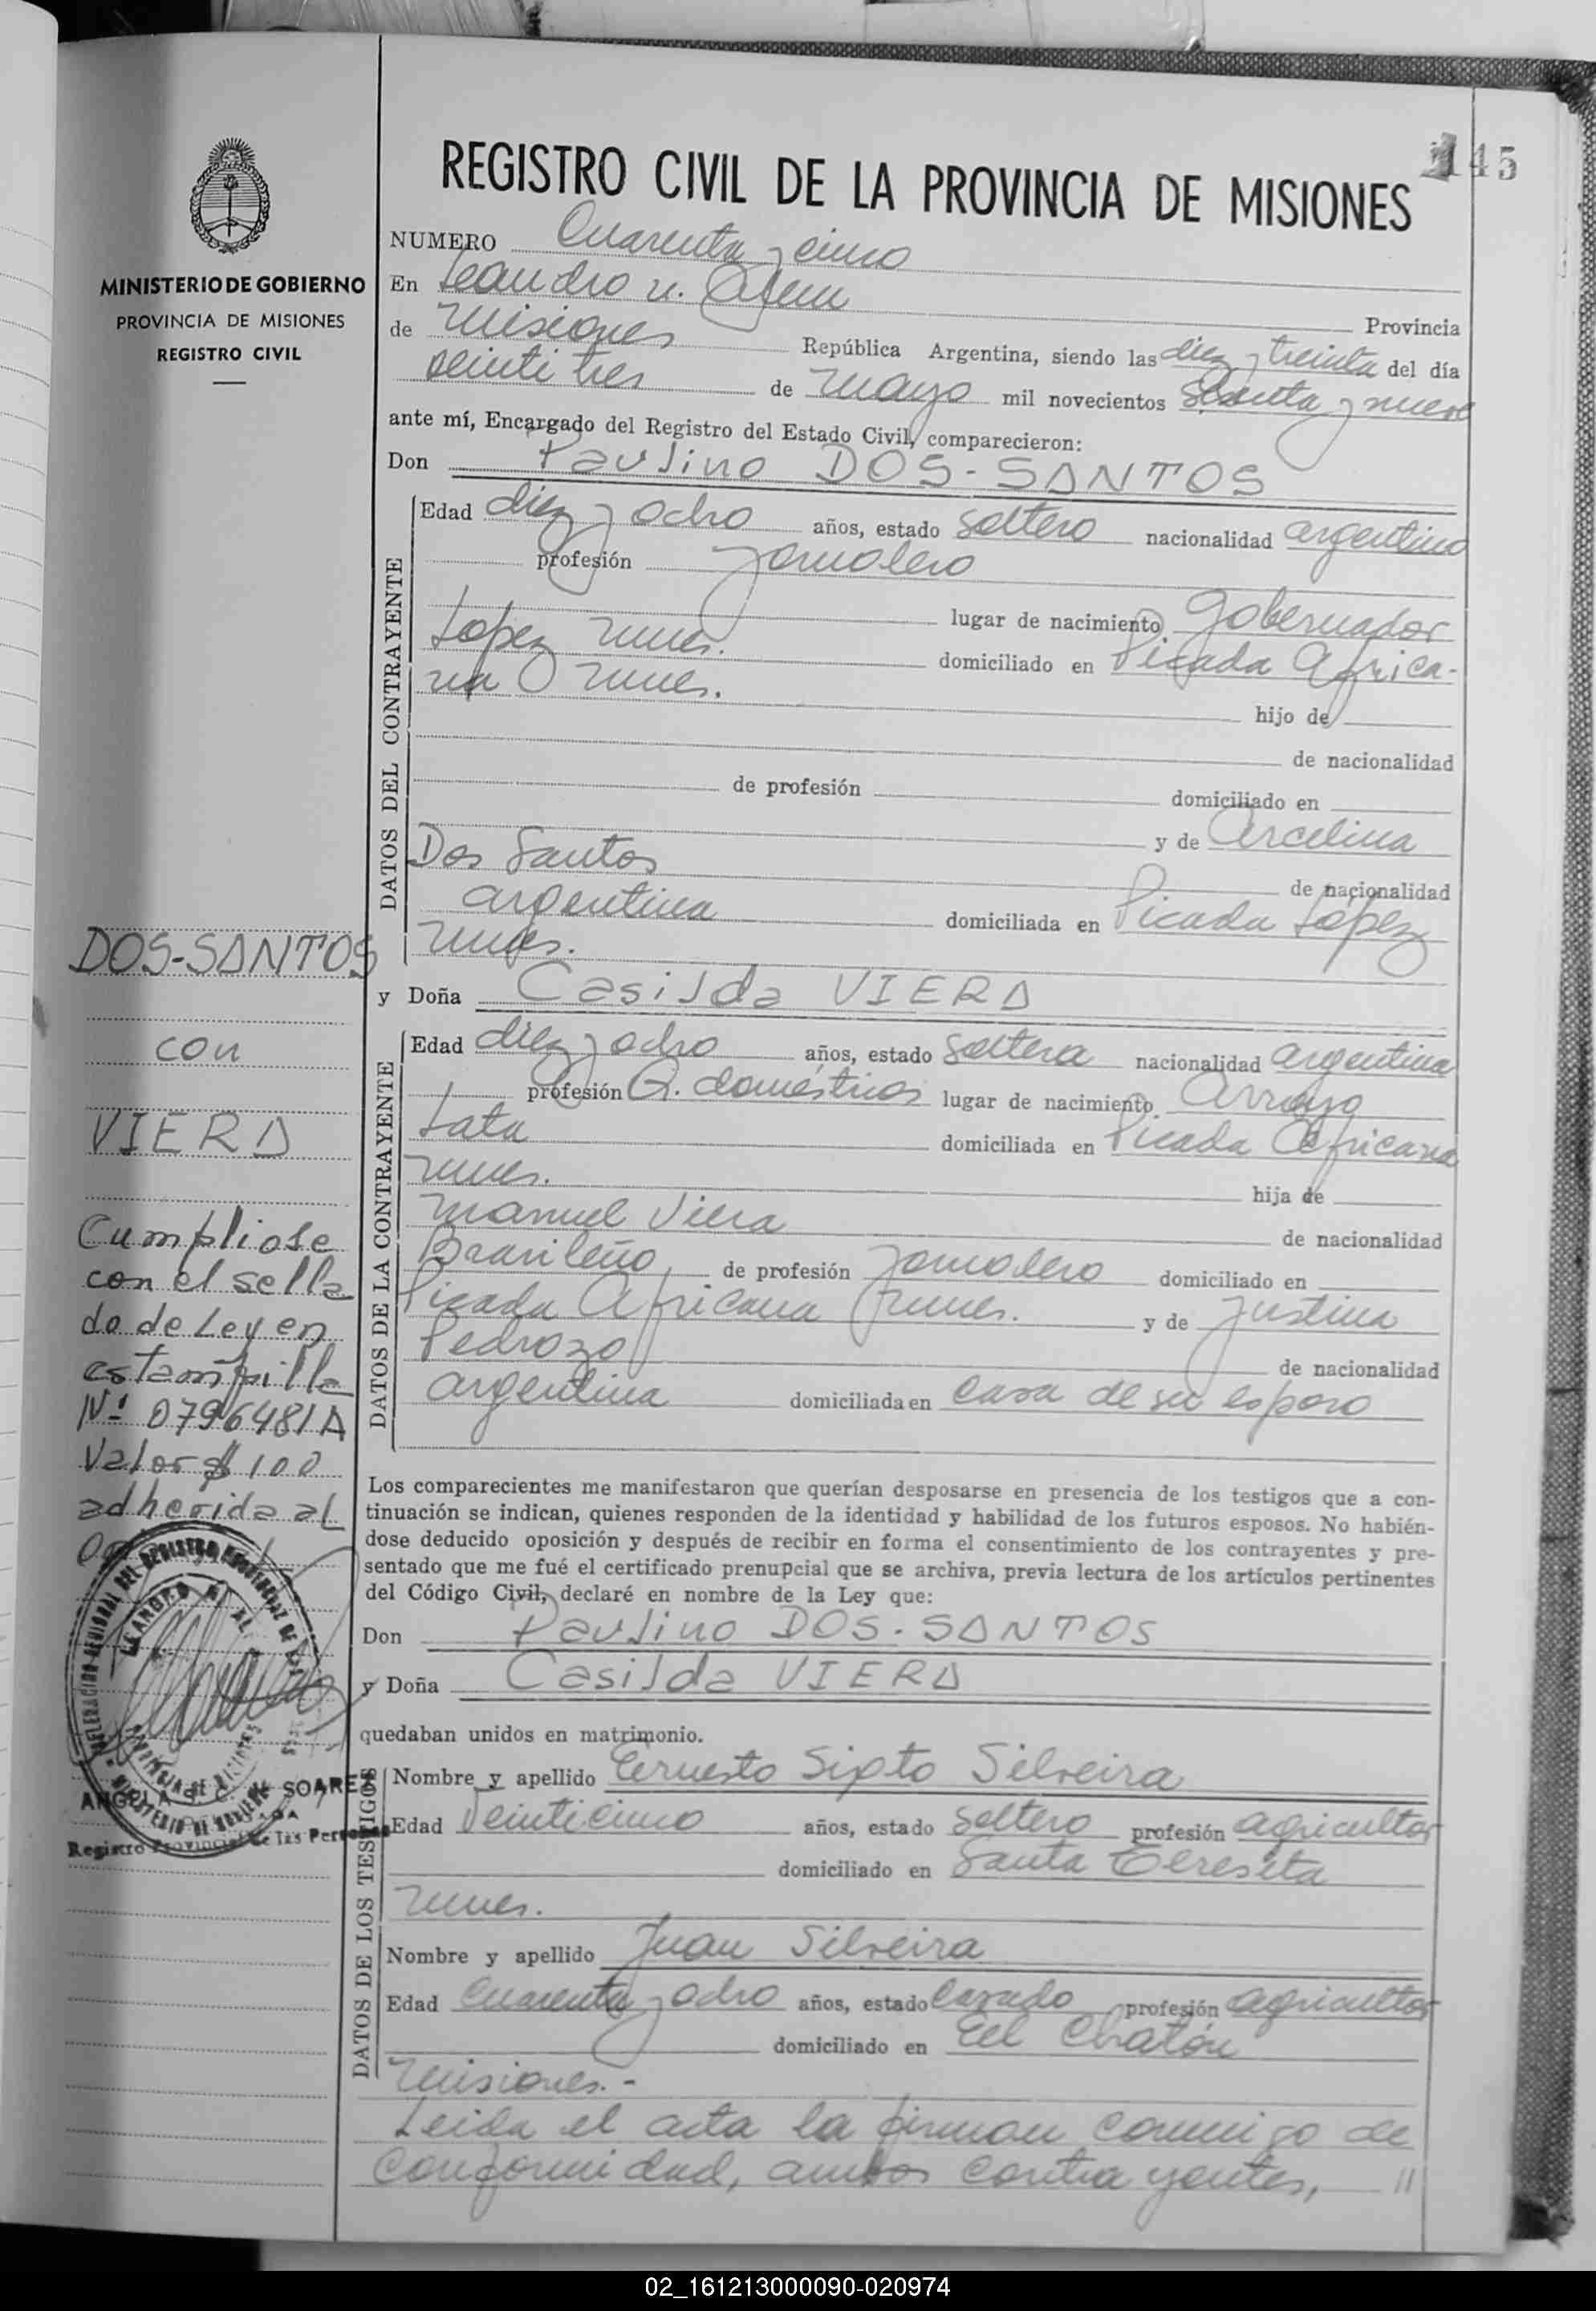 145
REGISTRO CIVIL DE LA PROVINCIA DE MISIONES
MINISTERIO DE GOBIERNO
PROVINCIA DE MISIONES
REGISTRO CIVIL
NUMERO Cuarenta y cinco
En Leandro N. Alem Provincia
de Misiones República Argentina, siendo las diez y treinta del día
veinti tres de mayo mil novecientos sesenta y nueve
ante mí, Encargado del Registro del Estado Civil, comparecieron:
Don Paulino DOS-SANTOS
DATOS DEL CONTRAYENTE
Edad diez y ocho años, estado soltero nacionalidad argentino
profesión Jornalero
lugar de nacimiento Gobernador
Lopez Mnes. domiciliado en Picada Africa-
na Mnes. hijo de
de nacionalidad
de profesión domiciliado en
y de Arcelina
Dos Santos de nacionalidad
argentina domiciliada en Picada López
Mnes.
y Doña Casilda VIERA
DATOS DE LA CONTRAYENTE
Edad diez y ocho años, estado soltera nacionalidad argentina
profesión Q. domésticos lugar de nacimiento Arroyo
Tata domiciliada en Picada Africana
Mnes. hija de
Manuel Viera de nacionalidad
Brasileño de profesión Jornalero domiciliado en
Picada Africana Mnes. y de Justina
Pedrozo de nacionalidad
argentina domiciliada en casa de su esposo
Los comparecientes me manifestaron que querían desposarse en presencia de los testigos que a con-
tinuación se indican, quienes responden de la identidad y habilidad de los futuros esposos. No habién-
dose deducido oposición y después de recibir en forma el consentimiento de los contrayentes y pre-
sentado que me fué el certificado prenupcial que se archiva, previa lectura de los artículos pertinentes
del Código Civil, declaré en nombre de la Ley que:
Don Paulino DOS-SANTOS
y Doña Casilda VIERA
quedaban unidos en matrimonio.
DATOS DE LOS TESTIGOS
Nombre y apellido Ernesto Sixto Silveira
Edad Veinticinco años, estado soltero profesión agricultor
domiciliado en Santa Teresita
Mnes.
Nombre y apellido Juan Silveira
Edad Cuarenta y ocho años, estado casado profesión agricultor
domiciliado en El Chatón
Misiones.-
Leida el acta la firman conmigo de
conformidad, ambos contrayentes, //
DOS-SANTOS
con
VIERA
Cumpliose
con el sella
do de Ley en
estampilla
Nº 0796481A
Valor $ 100
adherida al
SOAREZ
Registro Provincial de las Personas
02_161213000090-020974